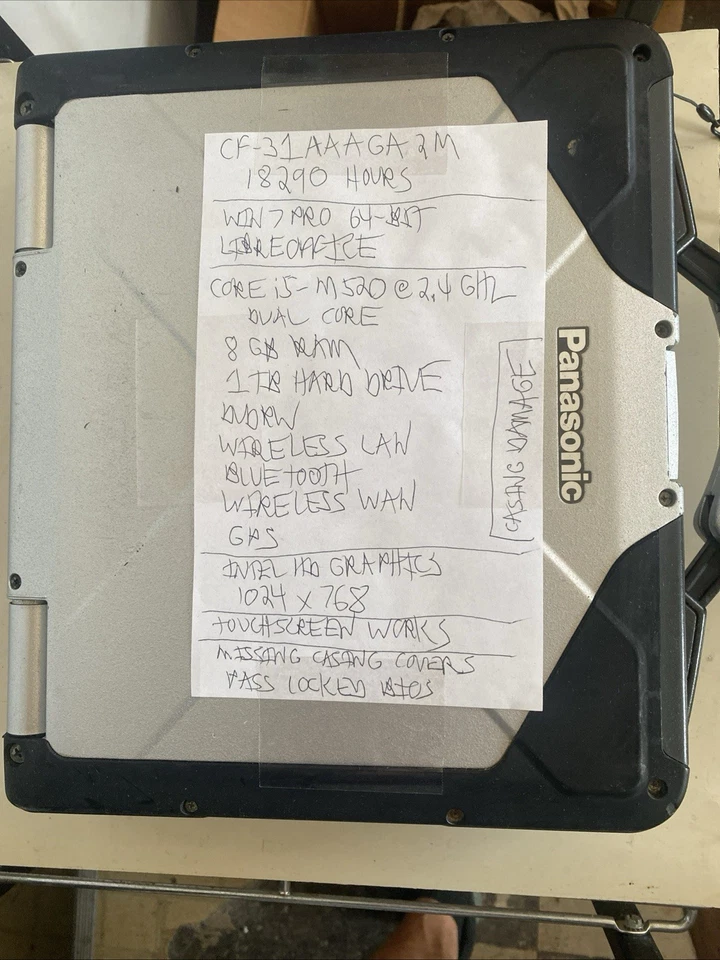 CF-31AAAGA2M
18290 HOURS
WIN 7 PRO 64-BIT
LIBREOFFICE
CORE i5-M520 @ 2.4 GHZ
DUAL CORE
8 GB RAM
1 TB HARD DRIVE
DVDRW
WIRELESS LAN
BLUETOOTH
WIRELESS WAN
GPS
INTEL HD GRAPHICS
1024 x 768
TOUCHSCREEN WORKS
MISSING CASING COVERS
PASS LOCKED BIOS
CASING DAMAGE
Panasonic